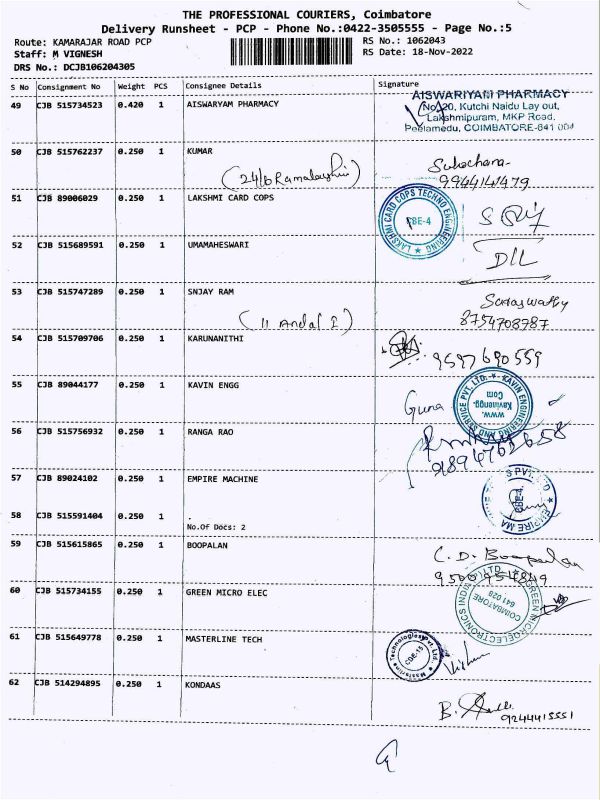 THE PROFESSIONAL COURIERS, Coimbatore
Delivery Runsheet - PCP - Phone No.:0422-3505555 - Page No.:5
Route: KAMARAJAR ROAD PCP
RS No.: 1062043
Staff: M VIGNESH
RS Date: 18-Nov-2022
DRS No.: DCJB106204305
S No Consignment No Weight PCS Consignee Details Signature
49 CJB 515734523 0.420 1 AISWARYAM PHARMACY
AISWARIYAM PHARMACY
No.20, Kutchi Naidu Lay out,
Lakshmipuram, MKP Road,
Peelamedu, COIMBATORE-641 004
50 CJB 515762237 0.250 1 KUMAR
9944141479
51 CJB 89006029 0.250 1 LAKSHMI CARD COPS
LAKSHMI CARD COPS TECHNO ENGINEERING
CBE-4
52 CJB 515689591 0.250 1 UMAMAHESWARI
D/L
53 CJB 515747289 0.250 1 SNJAY RAM
(11 Andal 2)
Saraswathy
8754708787
54 CJB 515709706 0.250 1 KARUNANITHI
9597690559
55 CJB 89044177 0.250 1 KAVIN ENGG
Guna
KAVIN ENGINEERING AND SERVICE PVT. LTD.
www.
Kavinengg.
Com
56 CJB 515756932 0.250 1 RANGA RAO
57 CJB 89024102 0.250 1 EMPIRE MACHINE
EMPIRE MA
58 CJB 515591404 0.250 1
No.Of Docs: 2
59 CJB 515615865 0.250 1 BOOPALAN
C. D. Boopalan
60 CJB 515734155 0.250 1 GREEN MICRO ELEC
GREEN MICROELECTRONICS INDIA (P) LTD
COIMBATORE
641 028
61 CJB 515649778 0.250 1 MASTERLINE TECH
Masterline Technologies Pvt. Ltd.
CBE-15
62 CJB 514294895 0.250 1 KONDAAS
B.
9244415551